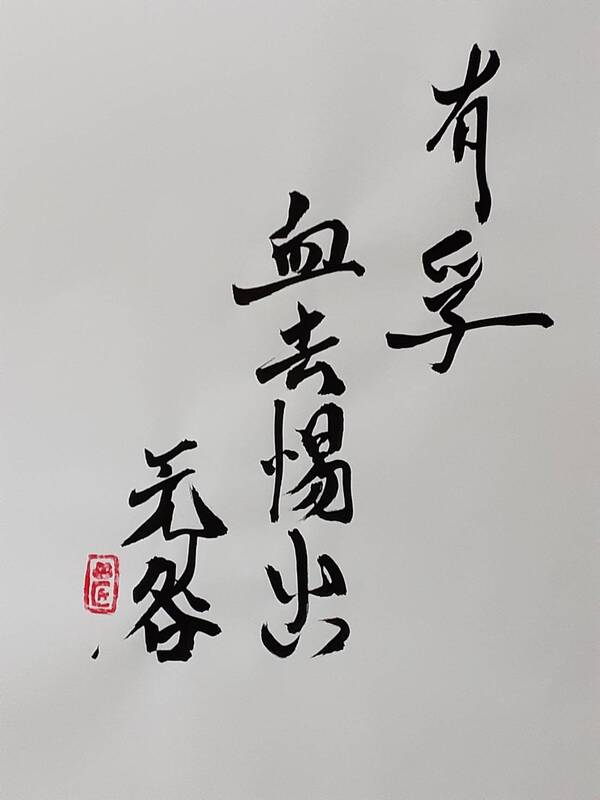 有孚
血去惕出
无咎